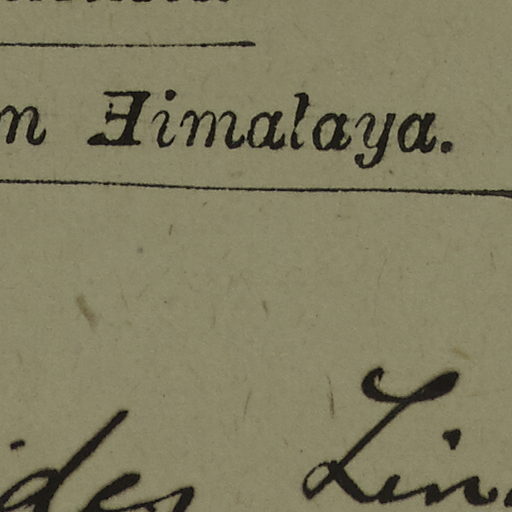 n Himalaya.
ides Lin